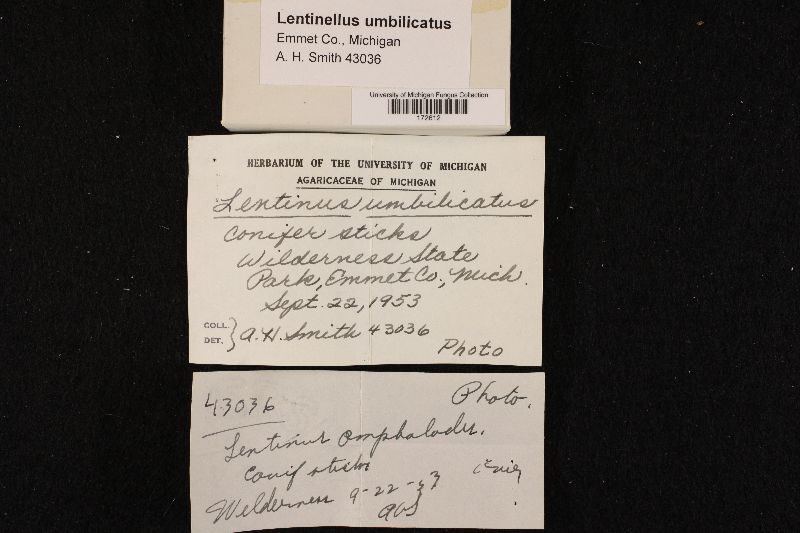 Lentinellus umbilicatus
Emmet Co., Michigan
A. H. Smith 43036
University of Michigan Fungus Collection
172612
HERBARIUM OF THE UNIVERSITY OF MICHIGAN
AGARICACEAE OF MICHIGAN
Lentinus umbilicatus
Conifer sticks
Wilderness State
Park, Emmet Co., Mich.
Sept. 22, 1953
COLL.
DET. } A. H. Smith 43036
Photo
43036 Photo.
Lentinus omphalodes.
Conif sticks
Wilderness 9-22-53
AHS